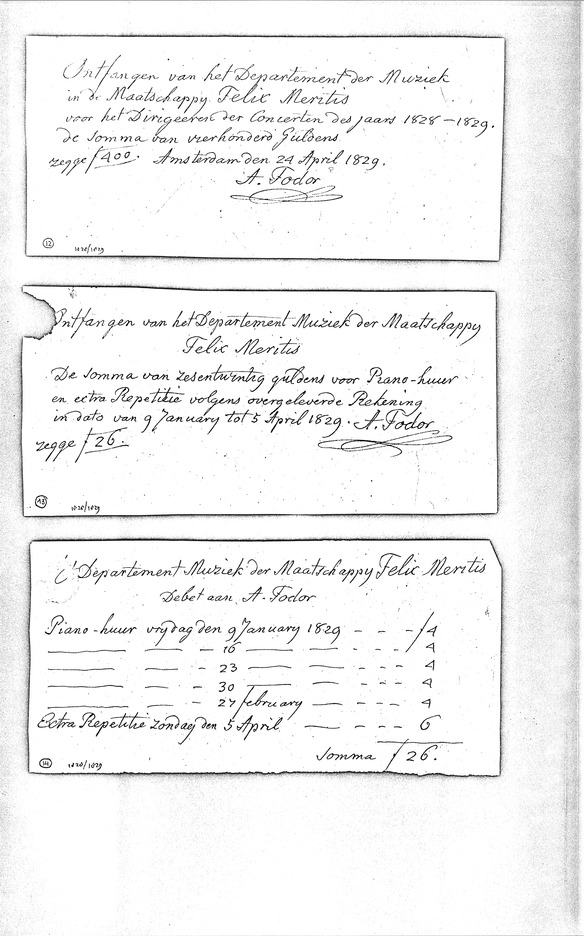 Ontfangen van het Departement der Muziek
in de Maatschappy Felix Meritis
voor het Dirigeeren der Concerten des jaars 1828-1829.
de Somma van vierhonderd Guldens
zegge ƒ400. Amsterdam den 24 April 1829.
A. Fodor
12 1828/1829
Ontfangen van het Departement Muziek der Maatschappy
Felix Meritis
De Somma van zesentwintig guldens voor Piano-huur
en extra Repetitie volgens overgeleverde Rekening
in dato van 9 January tot 5 April 1829. A. Fodor
zegge ƒ26.
13 1828/1829
't Departement Muziek der Maatschappy Felix Meritis
Debet aan A. Fodor
Piano-huur vrydag den 9 January 1829 - - - ƒ4
—— —— - 16 —— —— - - - 4
—— —— - 23 —— —— - - - 4
—— —— - 30 —— —— - - - 4
—— —— - 27 february —— - - - 4
Extra Repetitie zondag den 5 April —— - - - 6
Somma ƒ26.
14 1828/1829